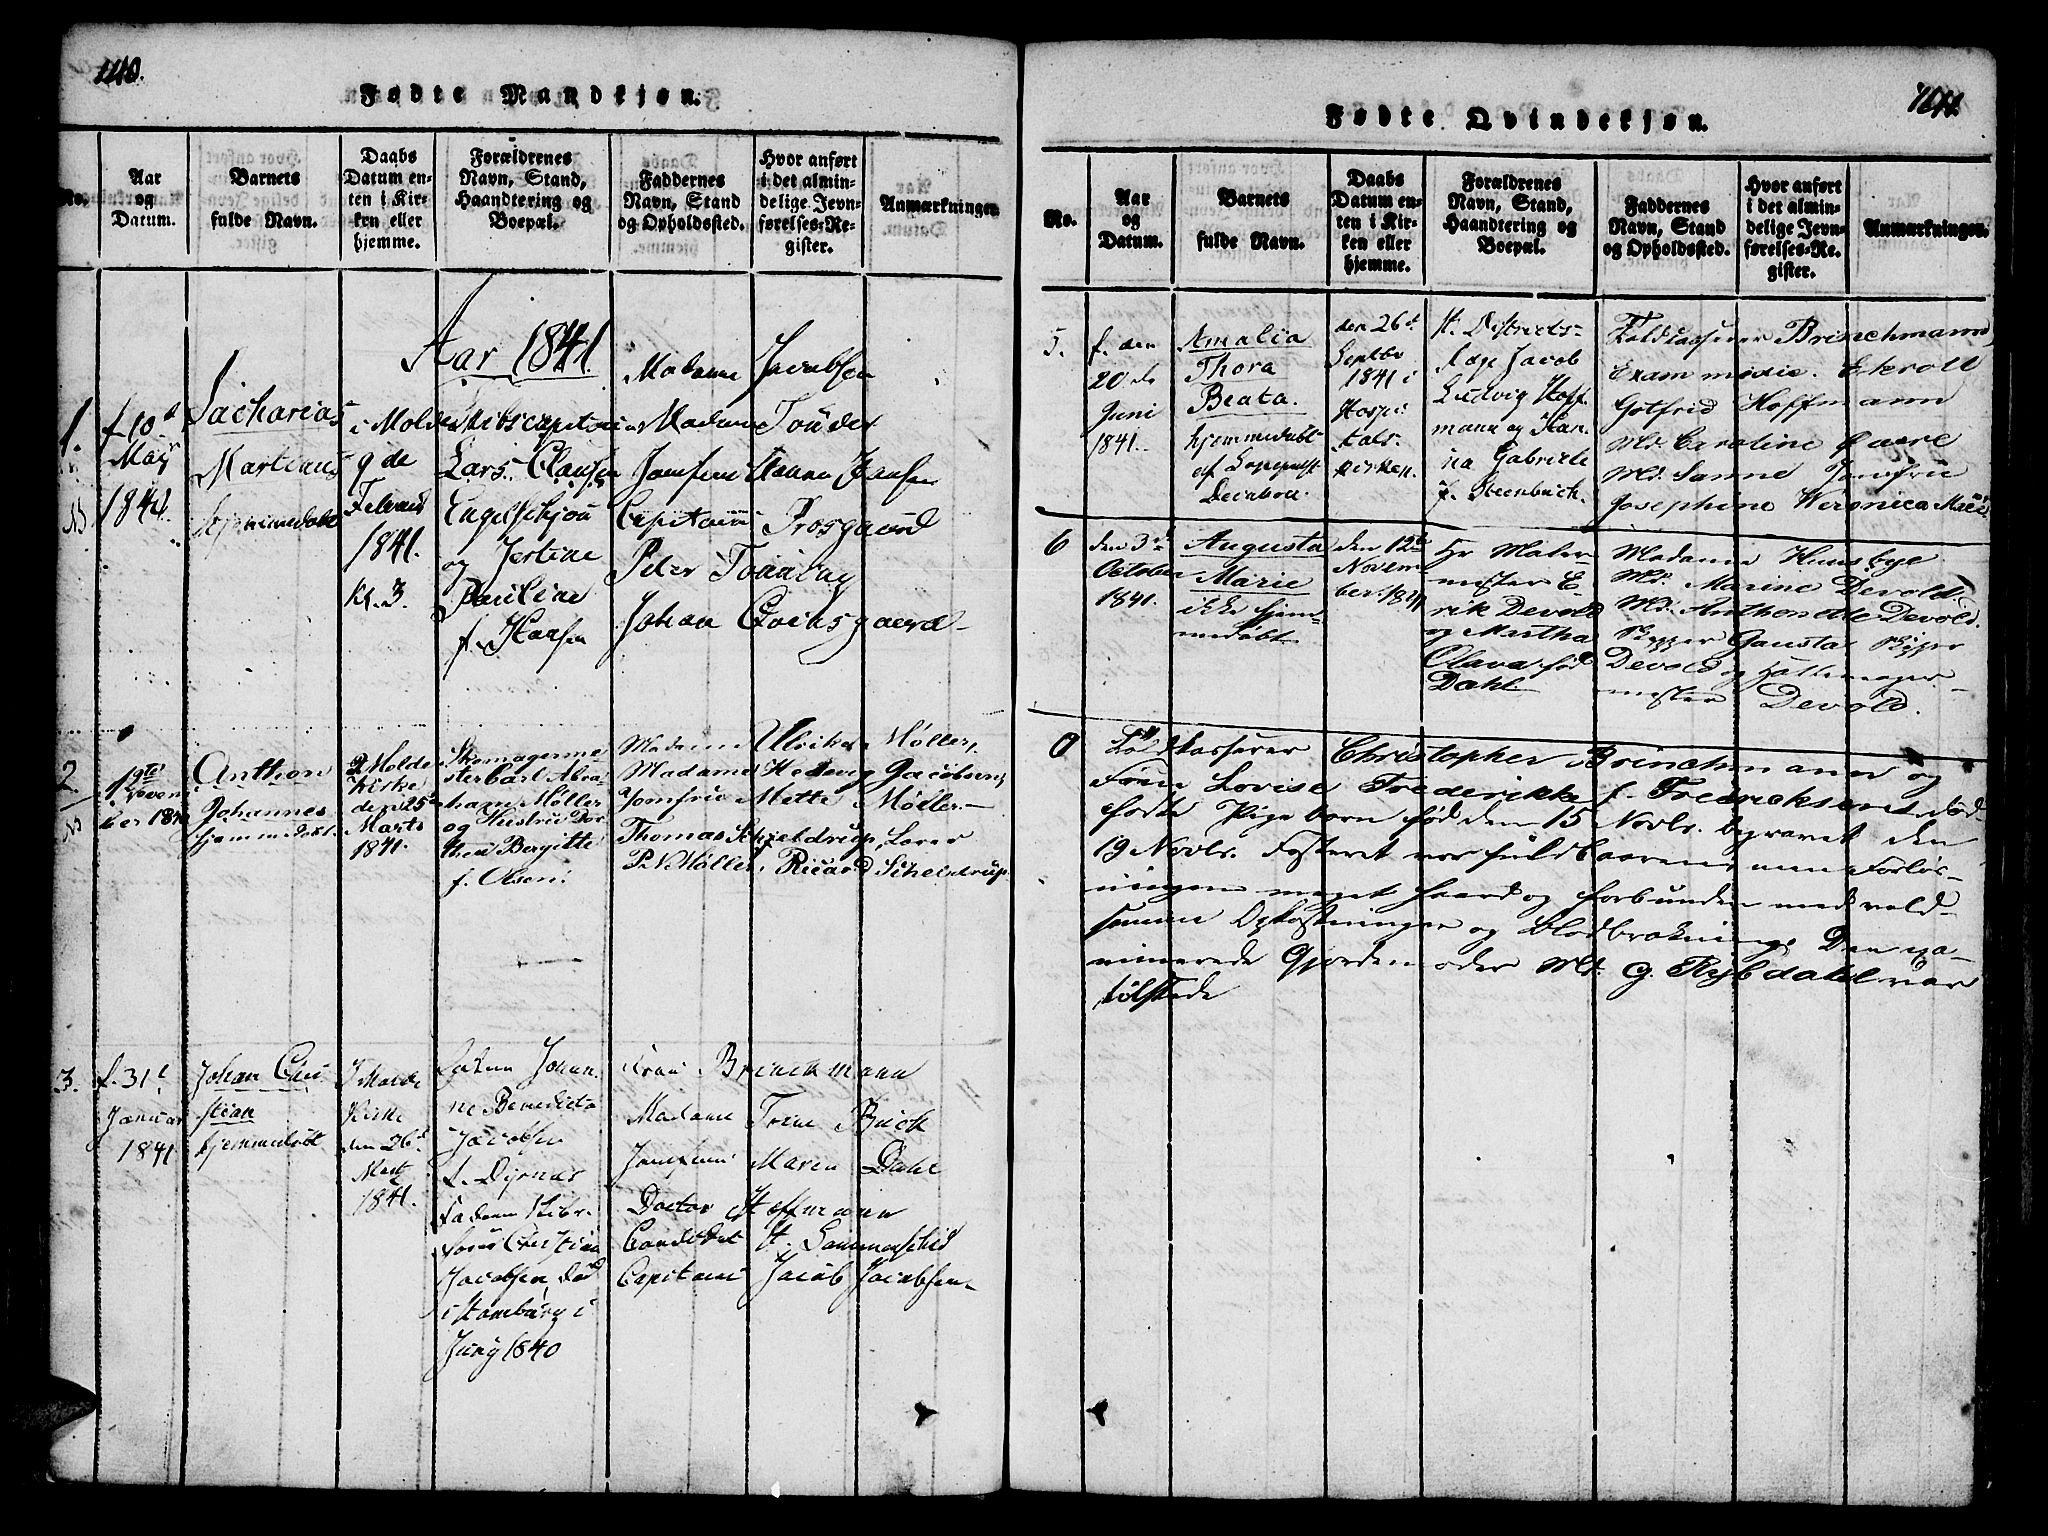 140.
Fødte Mandkjøn.
No.
Aar
og
Datum.
Barnets
fulde Navn.
Daabs
Datum en-
ten i Kir-
ken eller
hjemme.
Forældrenes
Navn, Stand,
Haandtering og
Boepæl.
Faddernes
Navn, Stand
og Opholdssted.
Hvor anført
i det almin-
delige Jevn-
førelses-Re-
gister.
Anmærkninger
Aar 1841.
1.
f. 10d
May
1841.
Zacharias
Martinus
hjemmedøbt
i Molde
9 de
Februar
1841.
Kl. 3.
Lars Clausen
Engelschjøn
og Jertine
Pauline
f. Hansen
Madame Jacobsen
Madame Tønder
Jomfru Hanna Jensen
Capitain Prosgaard
Peter Tønnberg
Johan Qvihsgaard
2
1ste
Novem
ber 1840
Anthon
Johannes
hjemmedøbt.
I Molde
Kirke
den 25d
Marts
1841.
Skomagerme-
ster Carl Abra-
ham Møller
og Hustru Dor-
thea Bergitte
f. Olsen.
Madame Ulrikke Møller,
Madame Hedevig Jacobsen,
Jomfrue Mette Møller
Thomas Schjeldrup, Lærer
P. N. Møller, Ricard Schelderup
3.
f. 31t
Januar
1841
Johan Chri
stian
hjemmedøbt
I Molde
Kirke
den 26d
Martz
1841.
Johan
ne Benedicta
Jacobsen
f. Dyrnæs
Faderen Skibr.
Christian
Jacobsen død
i Hamburg i
Juny 1840
Frue Brinckmann
Madame Trine Buck
Jomfrue Maren Dahl
Doctor Hoffmann
Candidat H. Sommerschild
Capitain Jacob Jacobsen
141.
Fødte Qvindekjøn.
No.
Aar
og
Datum.
Barnets
fulde Navn.
Daabs
Datum en-
ten i Kir-
ken eller
hjemme.
Forældrenes
Navn, Stand,
Haandtering og
Boepæl.
Faddernes
Navn, Stand
og Opholdssted.
Hvor anført
i det almin-
delige Jevn-
førelses-Re-
gister.
Anmærkninger.
5.
f. den
20de
Juni
1841.
Amalia
Thora
Beata.
hjemmedøbt
af
den 26d
Septbr
1841 i
Hospi
tals-
kirken.
H. Districts-
læge Jacob
Ludvig Hoff
mann og Han-
na Gabriele
f. Steenbuch.
Toldkasserer Brinchmann,
Exam. Ekroll
Gotfrid Hoffmann
Md. Caroline Qvare
Md. Sanne Jomfrue
Josephine Weronica Møe
6
den 3de
October
1841.
Augusta
Marie
ikke hjem-
medøbt
den 12te
Novem-
ber 1841
Hr Maler-
mester E-
rik Devold
og Martha
Olava fød
Dahl
Madame Hunsbye
Md. Marine Devold
Md. Anthonette Devold.
Gaustal
Devold og Hattemager-
mester Devold.
0
Toldkasserer Christopher Brinchmann og
Frue Lovise Frederikke f. Fredricksens død-
fødte Pigebarn fød den 15 Novbr. begravet den
19 Novbr. Fosteret var fuldbaaren, men Forløs-
ningen meget haard og forbunden med vold-
somme Opkastninger og Blodbrækning. Den exa-
minerede Gjordemoder Md. G. Rybdahl var
tilstede